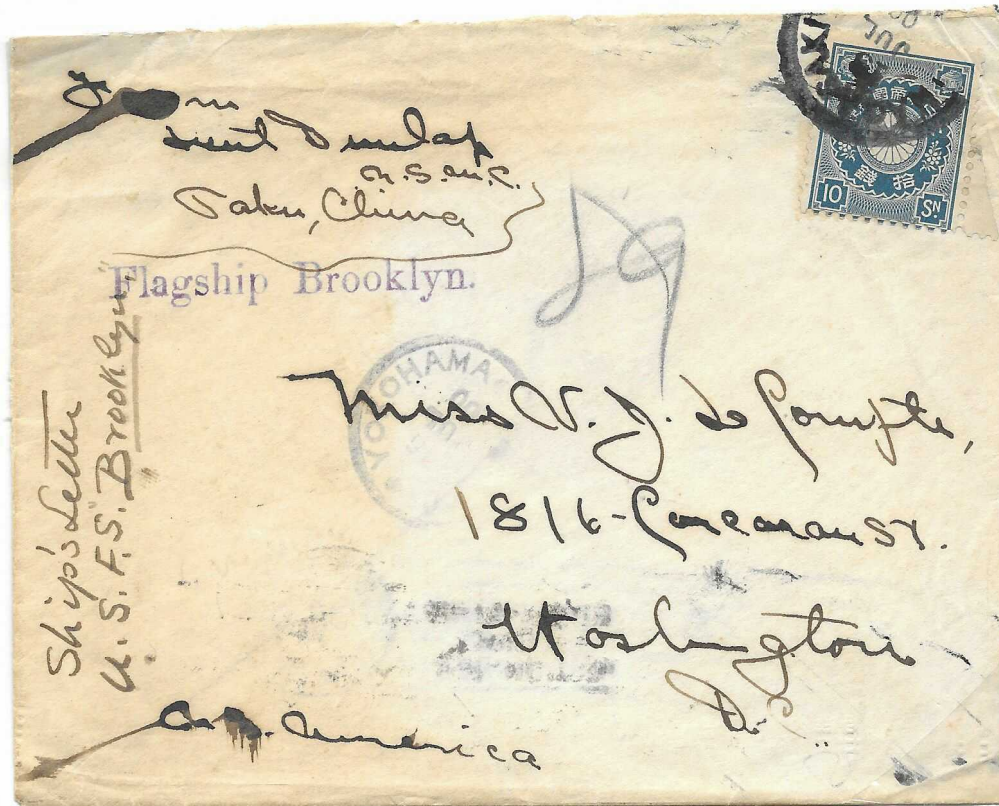 From
Lieut Dunlap
U.S.M.C.
Taku, China
Flagship Brooklyn.
Ship's Letter
U.S.F.S. "Brooklyn"
YOKOHAMA
JUL
10 Sn
拾錢
Miss V. J. Le Compte,
1816 - Corcoran St.
Washington
D.C.
U.S. America